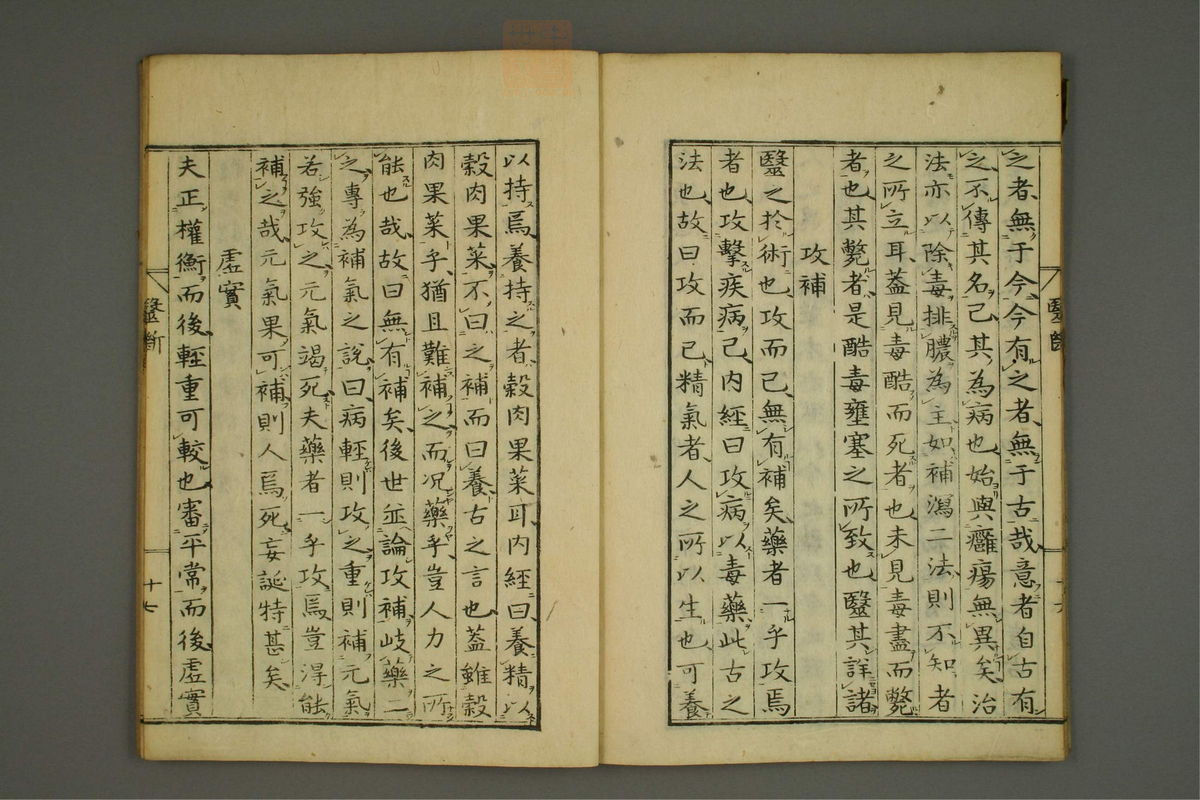 之者無于今今有之者無于古哉意者自古有
之不傳其名已其為病也始與癰瘍無異矣治
法亦以除毒排膿為主如補瀉二法則不知者
之所立耳蓋見毒酷而死者也未見毒盡而斃
者也其斃者是酷毒壅塞之所致也醫其詳諸
攻補
醫之於術也攻而已無有補矣藥者一乎攻焉
者也攻擊疾病已内經曰攻病以毒藥此古之
法也故曰攻而已精氣者人之所以生也可養
以持焉養持之者穀肉果菜耳内經曰養精以
穀肉果菜不曰之補而曰養古之言也蓋雖穀
肉果菜乎猶且難補之而况藥乎豈人力之所
能也哉故曰無有補矣後世並論攻補岐藥二
之專為補氣之說曰病輕則攻之重則補元氣
若強攻之元氣竭死夫藥者一乎攻焉豈得能
補之哉元氣果可補則人焉死妄誕特甚矣
虛實
夫正權衡而後輕重可較也審平常而後虛實
醫斷
十七